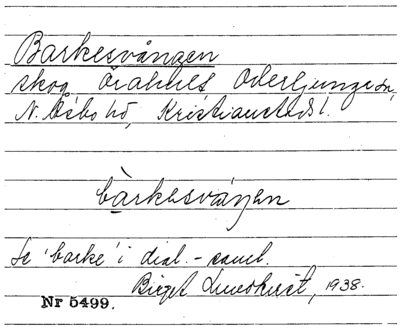 Barkesvången
skog Örahult, Oderljunga sn,
N. Åsbo hd, Kristianstads l.
bàrkesváŋen
Se 'barke' i dial.-saml.
Birget Lundkvist, 1938.
Nr 5499.